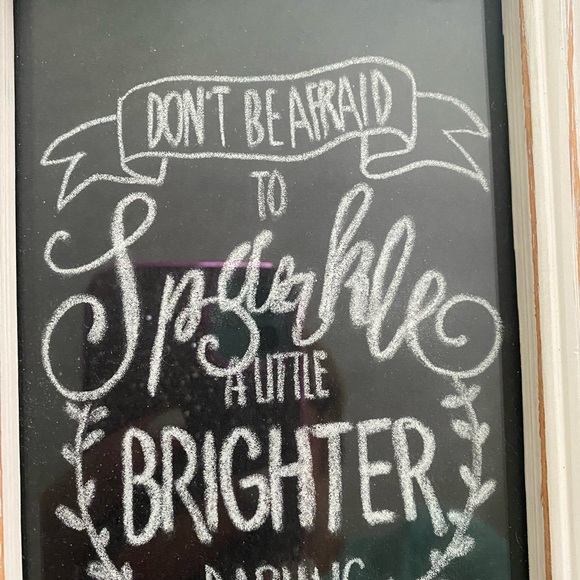 DON'T BE AFRAID
TO
Sparkle
A LITTLE
BRIGHTER